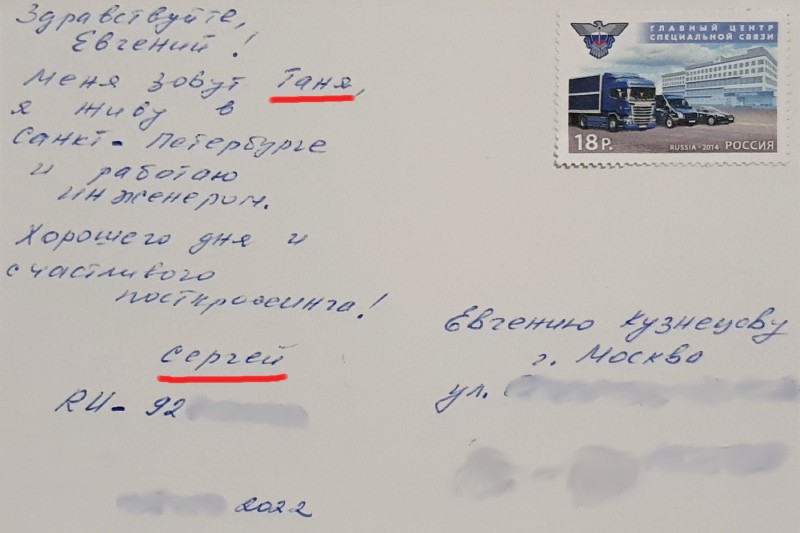 Здравствуйте,
Евгений!
Меня зовут Таня,
я живу в
Санкт-Петербурге
и работаю
инженером.
Хорошего дня и
счастливого
посткроссинга!
Сергей
RU-92
2022
ГЛАВНЫЙ ЦЕНТР
СПЕЦИАЛЬНОЙ СВЯЗИ
18 Р.
RUSSIA-2014 РОССИЯ
Евгению Кузнецову
г. Москва
ул.